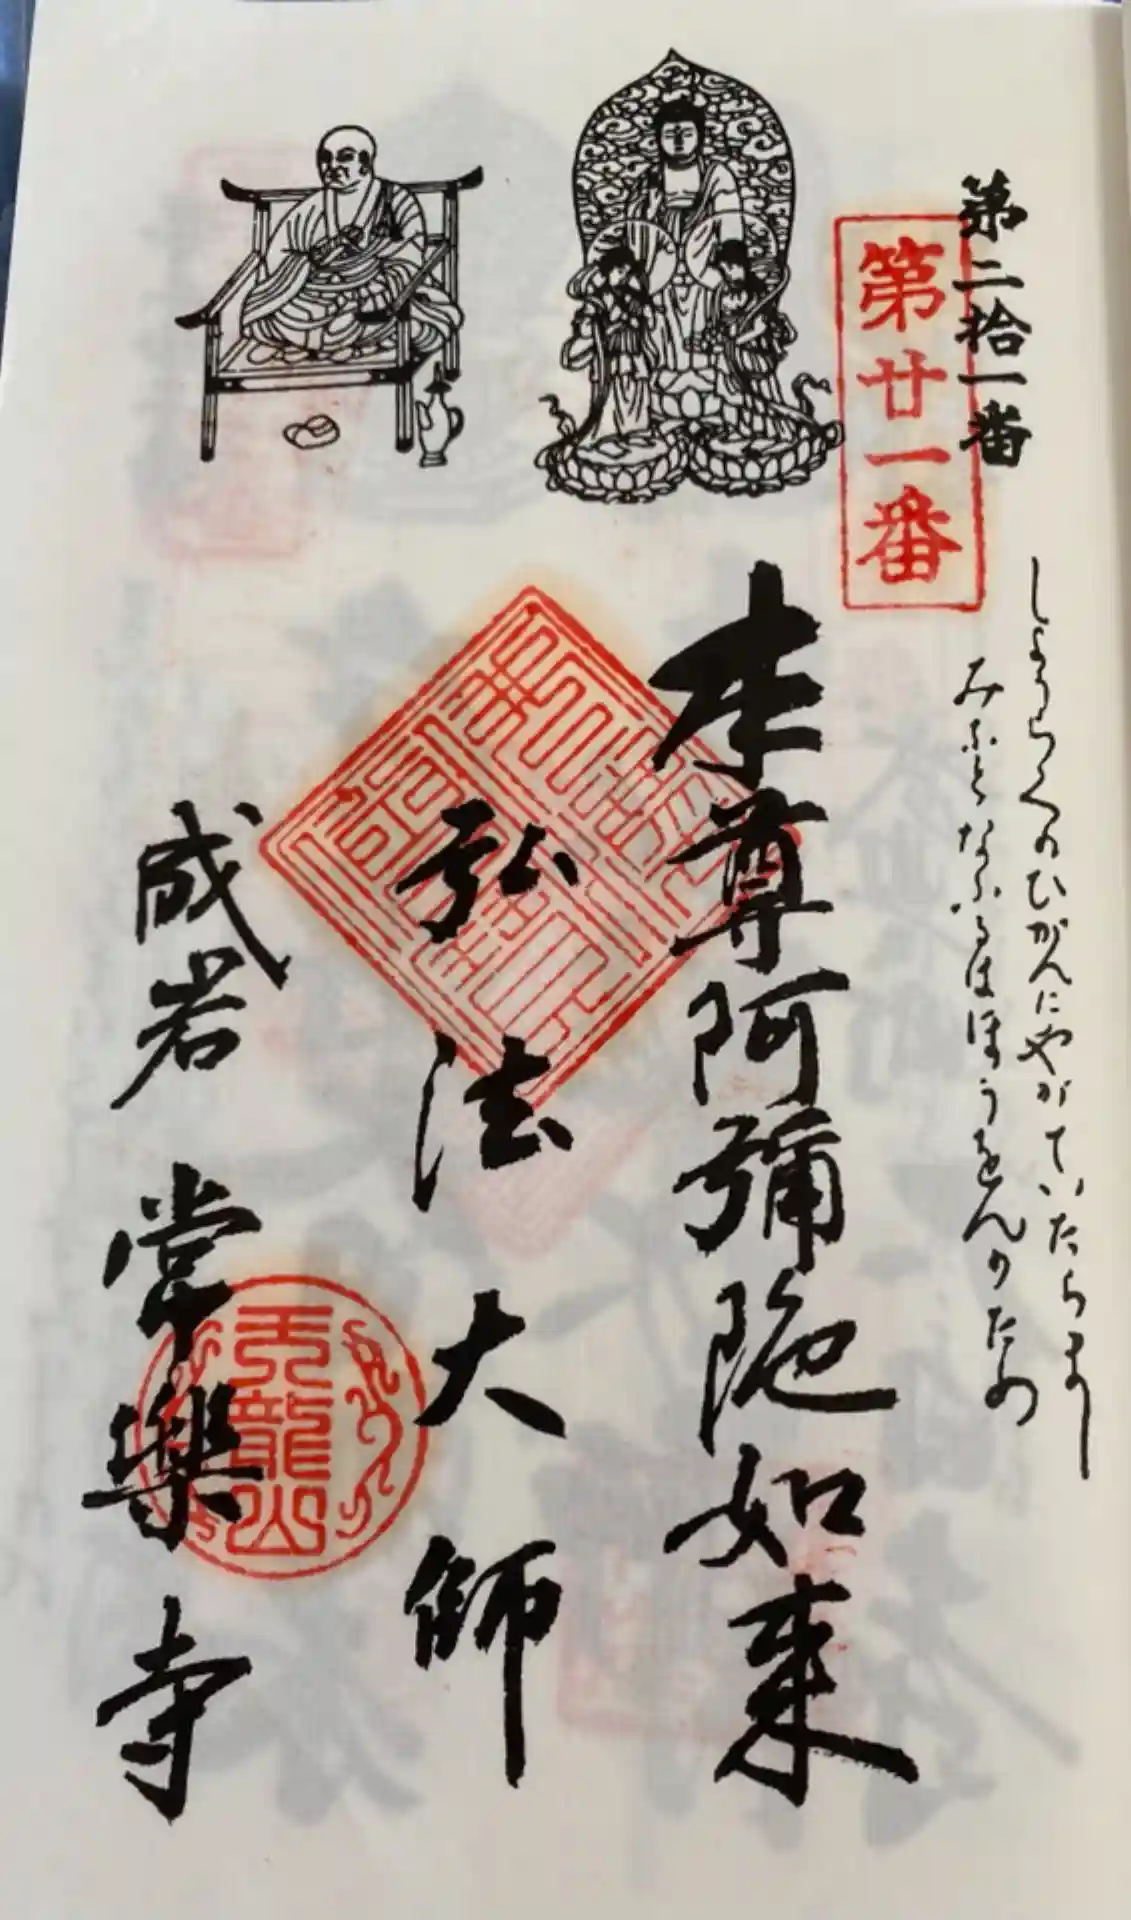 第二拾一番
第廿一番
しょうらくのひがんにやがていたらまし
みなとなふるはほうをんのため
本尊阿彌陀如来
弘法大師
成岩 常樂寺
天龍山